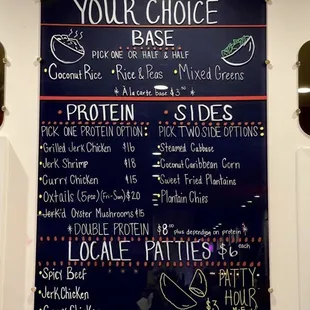 YOUR CHOICE
BASE
PICK ONE OR HALF & HALF
Coconut Rice • Rice & Peas • Mixed Greens
* À la carte base $3 *
PROTEIN
PICK ONE PROTEIN OPTION:
Grilled Jerk Chicken $16
Jerk Shrimp $18
Curry Chicken $15
Oxtails (5pcs) (Fri-Sun) $20
Jerk'd Oyster Mushrooms $15
SIDES
PICK TWO SIDE OPTIONS:
Steamed Cabbage
Coconut Caribbean Corn
Sweet Fried Plantains
Plantain Chips
*DOUBLE PROTEIN $8 plus depending on protein *
LOCALE PATTIES $6 each
• Spicy Beef
• Jerk Chicken
PATTY
HOUR
$3